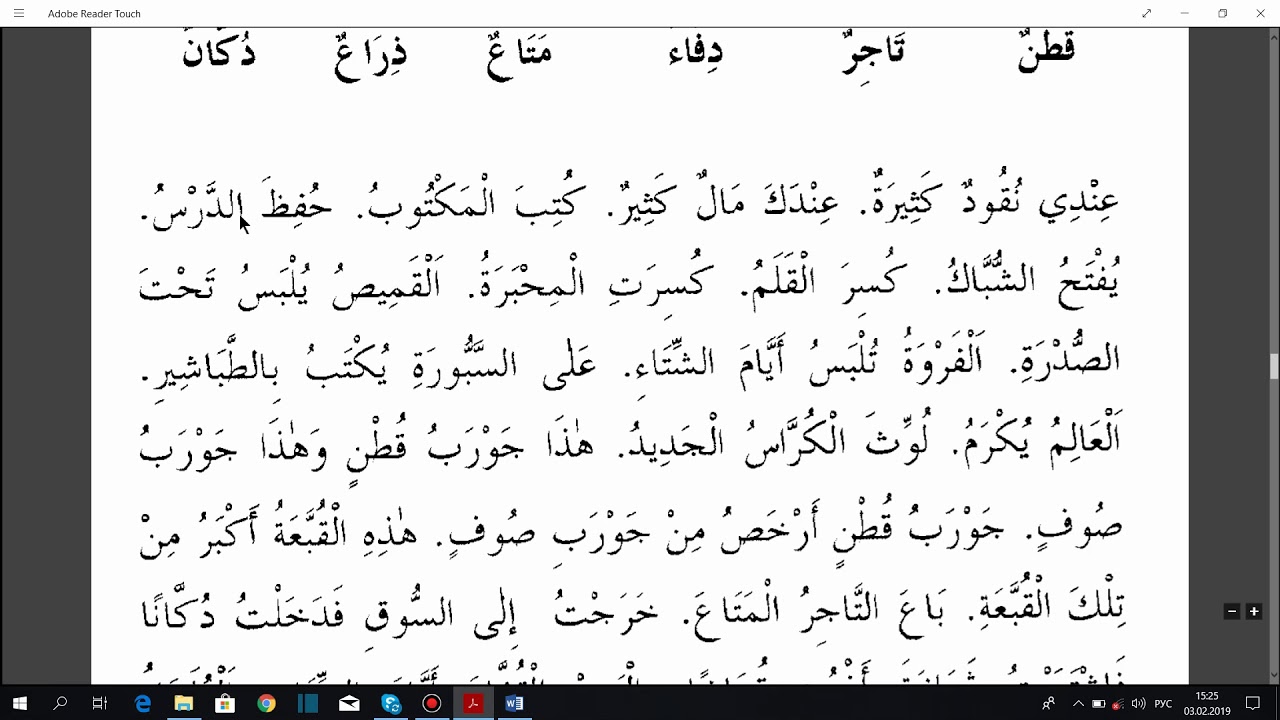 Adobe Reader Touch
قُطْنٌ تَاجِرٌ دِفَاءٌ مَتَاعٌ ذِرَاعٌ دُكَّانٌ
عِنْدِي نُقُودٌ كَثِيرَةٌ. عِنْدَكَ مَالٌ كَثِيرٌ. كُتِبَ الْمَكْتُوبُ. حُفِظَ الدَّرْسُ.
يُفْتَحُ الشُّبَّاكُ. كُسِرَ الْقَلَمُ. كُسِرَتِ الْمِحْبَرَةُ. اَلْقَمِيصُ يُلْبَسُ تَحْتَ
الصُّدْرَةِ. اَلْفَرْوَةُ تُلْبَسُ أَيَّامَ الشِّتَاءِ. عَلٰى السَّبُّورَةِ يُكْتَبُ بِالطَّبَاشِيرِ.
اَلْعَالِمُ يُكْرَمُ. لُوِّثَ الْكُرَّاسُ الْجَدِيدُ. هٰذَا جَوْرَبُ قُطْنٍ وَهٰذَا جَوْرَبُ
صُوفٍ. جَوْرَبُ قُطْنٍ أَرْخَصُ مِنْ جَوْرَبِ صُوفٍ. هٰذِهِ الْقُبَّعَةُ أَكْبَرُ مِنْ
تِلْكَ الْقُبَّعَةِ. بَاعَ التَّاجِرُ الْمَتَاعَ. خَرَجْتُ إِلٰى السُّوقِ فَدَخَلْتُ دُكَّانًا
РУС
15:25
03.02.2019